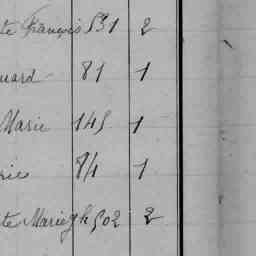 te François 531 2
uard 81 1
Marie 145 1
ries 84 1
te Marie 502 2